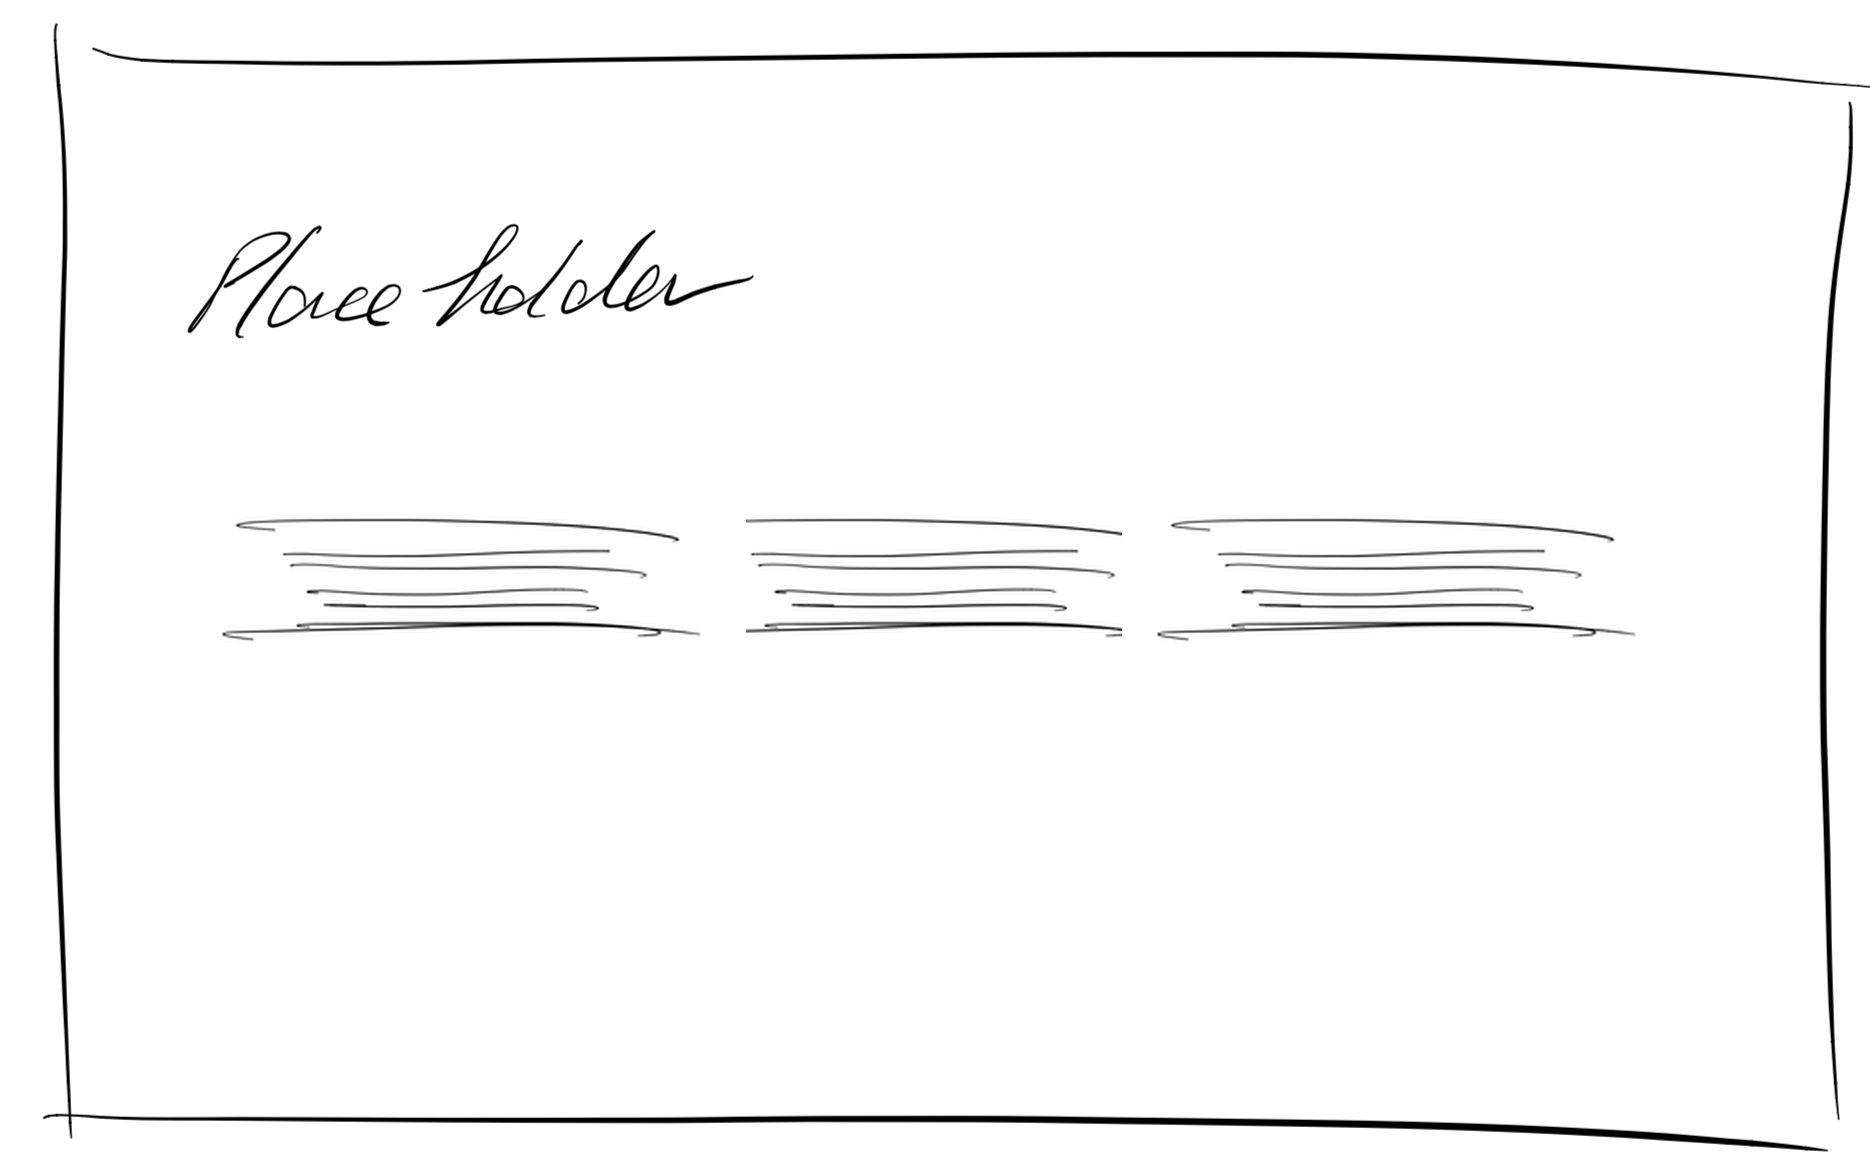 Place holder